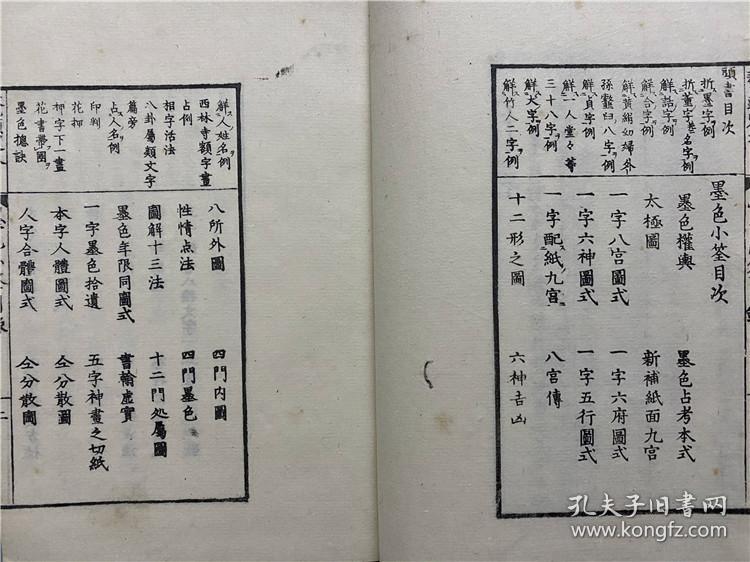 頭書目次
折墨字例
折董字巻名字例
解詰字例
解合字例
解黄絹幼婦外
孫齏臼八字例
解貞字例
解一人堂々等
三十八字例
解大字例
解竹人二字例
墨色小筌目次
墨色權輿
墨色占考本式
太極圖
新補紙面九宮
一字八宮圖式
一字六府圖式
一字六神圖式
一字五行圖式
一字配紙九宮
八宮傳
十二形之圖
六神吉凶
解人姓名例
西林寺額字畫
占例
相字活法
八卦屬類文字
篇旁
占人名例
印判
花押
押字下一畫
花書帶固
墨色摠訣
八所外圖
四門内圖
性情点法
四門墨色
圖解十三法
十二門処屬圖
墨色年限同圖式
書翰虚實
一字墨色拾遺
五字神畫之切紙
本字人體圖式
仝分散圖
人字合體圖式
仝分散圖
孔夫子旧书网
www.kongfz.com